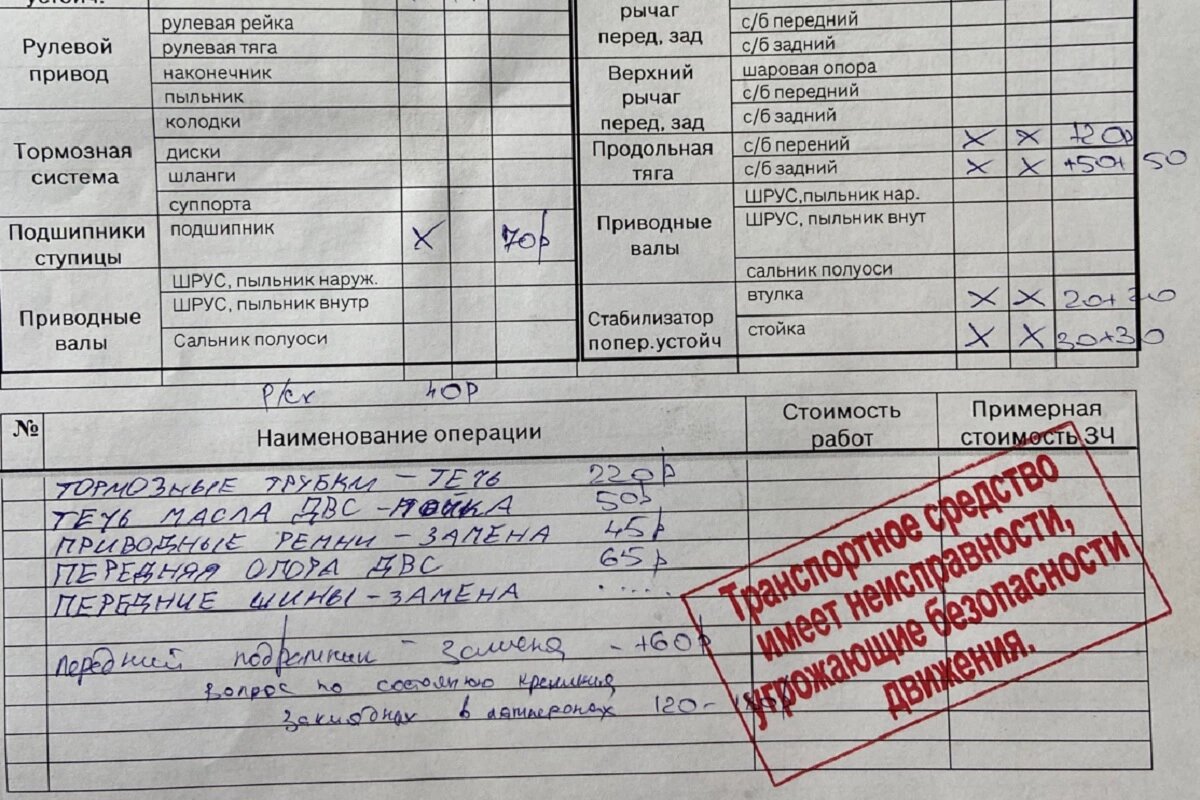 Рулевой привод
рулевая рейка
рулевая тяга
наконечник
пыльник
Тормозная система
колодки
диски
шланги
суппорта
Подшипники ступицы
подшипник X 70р
Приводные валы
ШРУС, пыльник наруж.
ШРУС, пыльник внутр
Сальник полуоси
рычаг перед, зад
с/б передний
с/б задний
Верхний рычаг перед, зад
шаровая опора
с/б передний
с/б задний
Продольная тяга
с/б перений X X 120р
с/б задний X X +50+ 50
Приводные валы
ШРУС,пыльник нар.
ШРУС, пыльник внут
сальник полуоси
Стабилизатор попер.устойч
втулка X X 20+20
стойка X X 30+30
Р/сх 40Р
№ Наименование операции Стоимость работ Примерная стоимость ЗЧ
ТОРМОЗНЫЕ ТРУБКИ – ТЕЧЬ 220р
ТЕЧЬ МАСЛА ДВС – МОЙКА 50р
ПРИВОДНЫЕ РЕМНИ – ЗАМЕНА 45р
ПЕРЕДНЯЯ ОПОРА ДВС 65р
ПЕРЕДНИЕ ШИНЫ – ЗАМЕНА .....
Передний подрамник – замена – +60р
вопрос по состоянию
закладных в 120-
Транспортное средство
имеет неисправности,
угрожающие безопасности
движения.